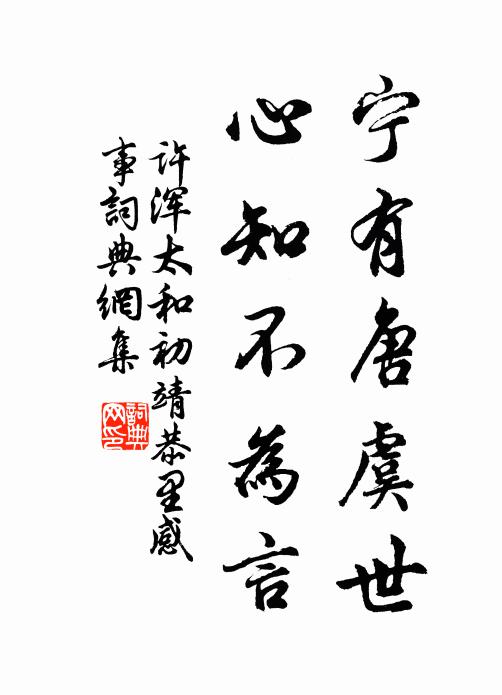 宁有唐虞世
心知不為言
许浑太和初靖恭里感
事詞典網集
詞典
网印